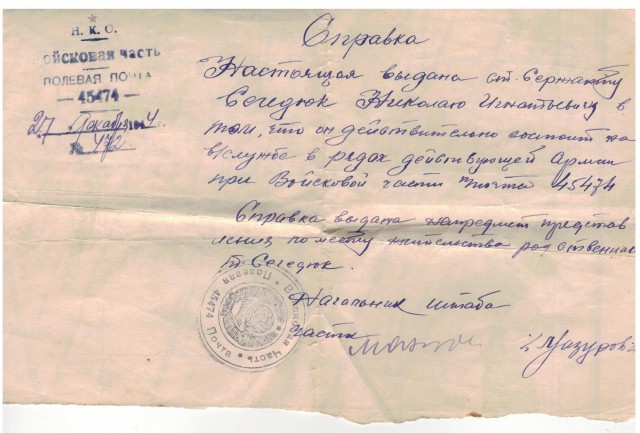 Н. К. О.
ойсковая часть
ПОЛЕВАЯ ПОЧТА
— 45474 —
27 Декабря 194
№ 472
Справка
Настоящая выдана ст. Сержанту
Сегедюк Николаю Игнатьевичу в
том, что он действительно состоит на
в/службе в рядах действующей Армии
при Войсковой части п/почта 45474
Справка выдана на предмет представ
ления по месту жительства родственик
т. Сегедюк.
Начальник штаба
части
/Мазуров/
Войсковая Часть * Полевая Почта 45474 *